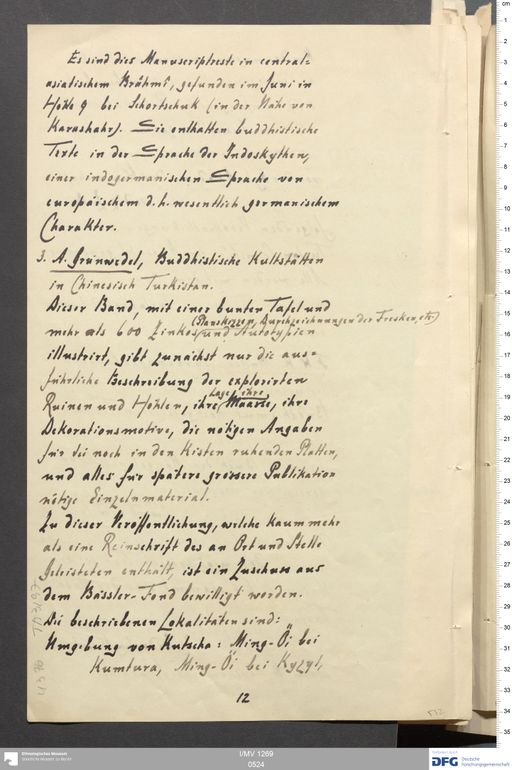 Es sind dies Manuscriptreste in central=
asiatischem Brāhmī, gefunden im Juni in
Hohle 9 bei Schortschuk (in der Nähe von
Karashahr). Sie enthalten buddhistische
Texte in der Sprache der Indoskythen,
einer indogermanischen Sprache von
europäischem d.h. wesentlich germanischem
Charakter.
3. A. Grünwedel, Buddhistische Kultstätten
in Chinesisch Turkistan.
Dieser Band, mit einer bunten Tafel und
(Planskizzen, Durchzeichnungen der Fresken, etc)
mehr als 600 Zinkos und Autotypien
illustrirt, gibt zunächst nur die aus=
führliche Beschreibung der explorirten
Ruinen und Höhlen, ihre Lage, ihre Maasse, ihre
Dekorationsmotive, die nötigen Angaben
für die noch in den Kisten ruhenden Platten,
und alles für spätere grössere Publikation
nötige Einzelnmaterial.
Zu dieser Veröffentlichung, welche kaum mehr
als eine Reinschrift des an Ort und Stelle
Geleisteten enthält, ist ein Zuschuss aus
dem Bässler-Fond bewilligt worden.
Die beschriebenen Lokalitäten sind:
Umgebung von Kutscha: Ming-Öi bei
Kumtura, Ming-Öi bei Kyzyl,
12
Ethnologisches Museum
Staatliche Museen zu Berlin
I/MV 1269
0524
DFG Deutsche
Forschungsgemeinschaft